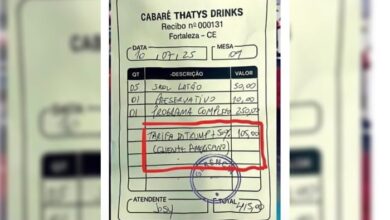 CABARÉ THATYS DRINKS
Recibo nº 000131
Fortaleza - CE
DATA 10/07/25 MESA 09
QT -DESCRIÇÃO- VALOR
05 SKOL LATÃO 50,00
01 PRESERVATIVO 10,00
01 PROGRAMA COMPLETO 250,00
TARIFA DO TRUMP + 50% 105,00
(CLIENTE AMERICANO)
ATENDENTE TOTAL
415,00